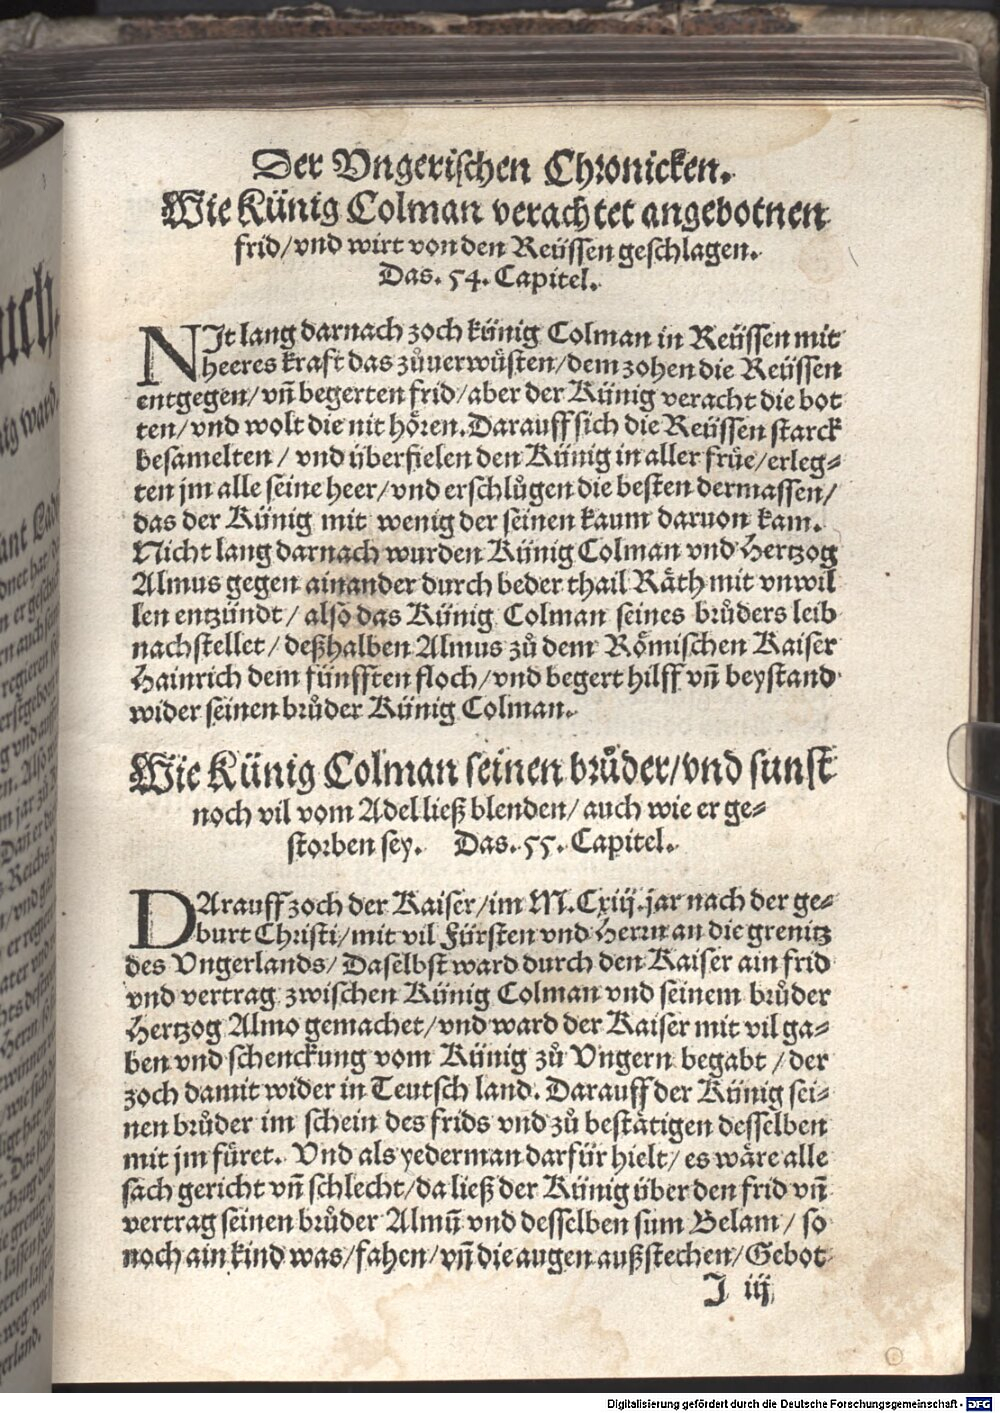 Der Vngerischen Chronicken.
Wie Künig Colman verachtet angebotnen
frid/vnd wirt von den Reüssen geschlagen.
Das. 54. Capitel.
NJt lang darnach zoch künig Colman in Reüssen mit
heeres kraft das zůuerwüsten/dem zohen die Reüssen
entgegen/vñ begerten frid/aber der Künig veracht die bot
ten/vnd wolt die nit hören. Darauff sich die Reüssen starck
besamelten/ vnd überfielen den Künig in aller früe/erleg⸗
ten jm alle seine heer/vnd erschlůgen die besten dermassen/
das der Künig mit wenig der seinen kaum daruon kam.
Nicht lang darnach wurden Künig Colman vnd Hertzog
Almus gegen ainander durch beder thail Räth mit vnwil
len entzündt/ also das Künig Colman seines brůders leib
nachstellet/ deßhalben Almus zů dem Römischen Kaiser
Hainrich dem fünfften floch/vnd begert hilff vñ beystand
wider seinen brůder Künig Colman.
Wie Künig Colman seinen brůder/vnd sunst
noch vil vom Adel ließ blenden/auch wie er ge⸗
storben sey. Das. 55. Capitel.
DArauff zoch der Kaiser/im M.Cxiij.jar nach der ge⸗
burt Christi/mit vil Fürsten vnd Herrn an die grenitz
des Vngerlands/ Daselbst ward durch den Kaiser ain frid
vnd vertrag zwischen Künig Colman vnd seinem brůder
Hertzog Almo gemachet/vnd ward der Kaiser mit vil ga⸗
ben vnd schenckung vom Künig zů Vngern begabt/der
zoch damit wider in Teutsch land. Darauff der Künig sei⸗
nen brůder im schein des frids vnd zů bestätigen desselben
mit jm füret. Vnd als yederman darfür hielt/ es wäre alle
sach gericht vñ schlecht/da ließ der Künig über den frid vñ
vertrag seinen brůder Almū vnd desselben sum Belam/ so
noch ain kind was/fahen/vñ die augen außstechen/Gebot
J iij
Digitalisierung gefördert durch die Deutsche Forschungsgemeinschaft - DFG